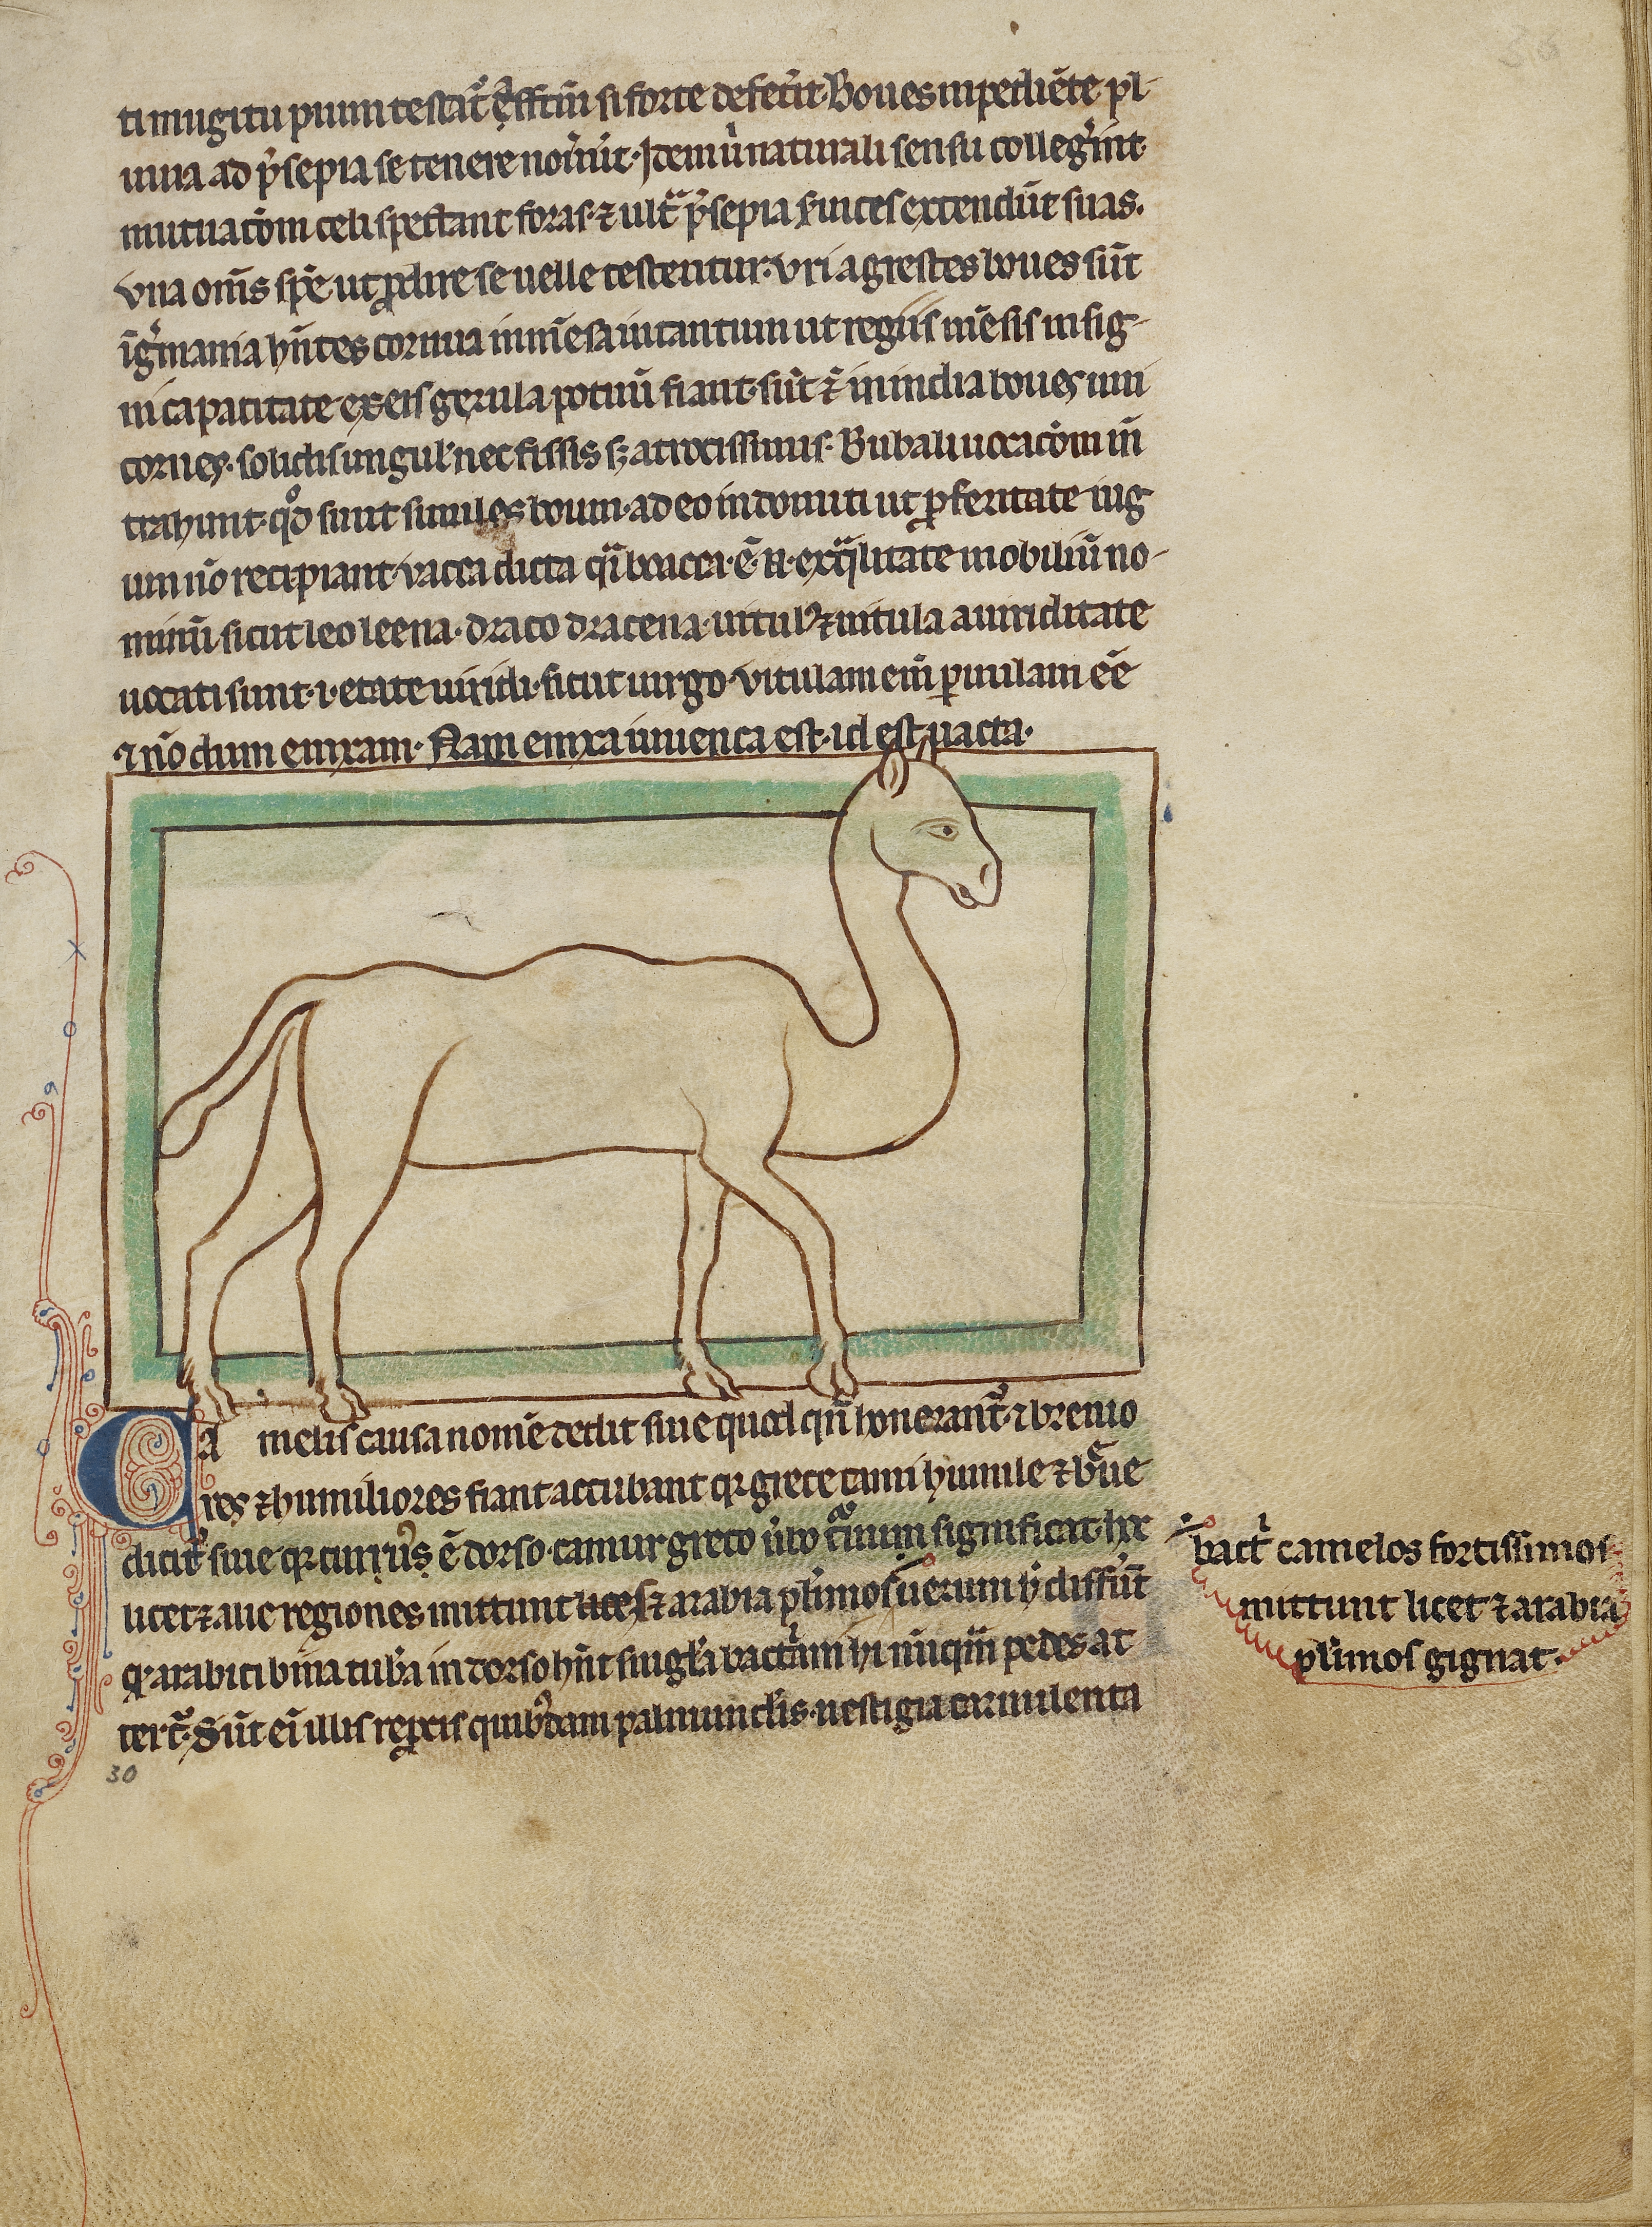 ti mugitu pium testat᷑ eff̄tm̄ si forte defec̉it. Boues inpediēte pl-
uuia ad p̉sepia se tenere noủūt. Item ů naturali sensu colleg̉int
mutuac̄om celi spectant foras ⁊ ult̃ p̉sepia extendūt suas.
vna om̄s spē ut ꝓdire se uelle testentur. vri agrestes boues sūt
ī g̉mania hn̄tes cornua inmēsa intantum ut regiis mēsis insig-
ni capacitate ex eis gerula potuū fiant. sūt ⁊ in india boues uni
cornes. solidis ungul̉ nec fissis sꝫ atrocissimis. Bubali uocac̄om in̄
trahunt. qd̊ sunt similes boum. adeo indomiti ut p̱ feritate iug
um nō recipiant. vacca dicta q̃i boacca. ē n̄. ex q̃litate mobiliū no-
minū sicut leo leena. draco dracena. uitul᷒ ⁊ uitula a uiriditate
uocati sunt. i. etate uiridi. sicut uirgo. vitulam em̄ paruulam eē
⁊ nō dum enixam. Nam enixa iuuenca est. id est uacca.
Ca melis causa nomē dedit siue quod qn̄ honerant᷑ ⁊ breuio
res ⁊ humiliores fiant accubant qꝛ grece cami humile ⁊ b̉ue
dicūt siue qꝛ curuus ē dorso. camur greco ůbo c̉uum significat. hꝫ
licet ⁊ alie regiones mittunt licet ⁊ arabia pl̉imos uerum h̉ diff̉ūt
qꝛ arabici bina tub̉a in dorso hn̄t singl̉a bact̉ni hi nūq̃m pedes at
tert̃. Sūt ei illis reṗcis quib᷒dam pulmunc̄lis. uestigia carnulenta
30
bact̉ camelos fortissimos
mittunt licet ⁊ arabia
pl̉imos gignat.